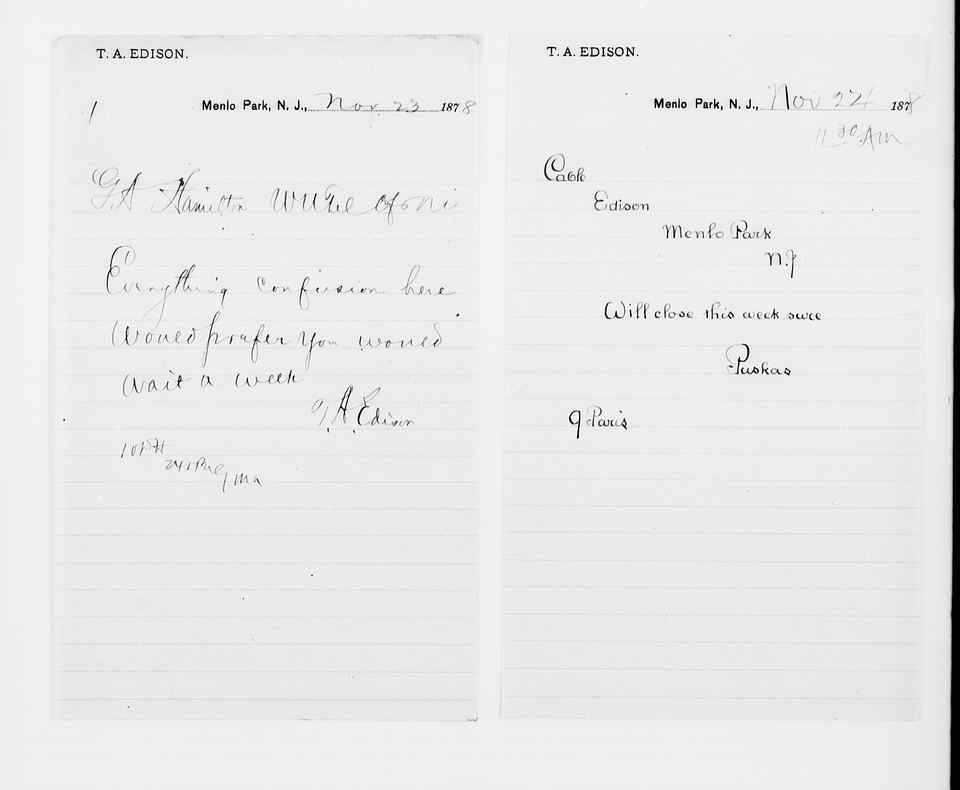 T. A. EDISON.
1
Menlo Park, N. J., Nov 23 1878
G A Hamilton WUTel of NY
Everything confusion here
Would prefer you would
wait a week
T. A. Edison
T. A. EDISON.
Menlo Park, N. J., Nov 24 1878
AM
Cable
Edison
Menlo Park
N.J
Will close this week sure
Puskas
9 Paris